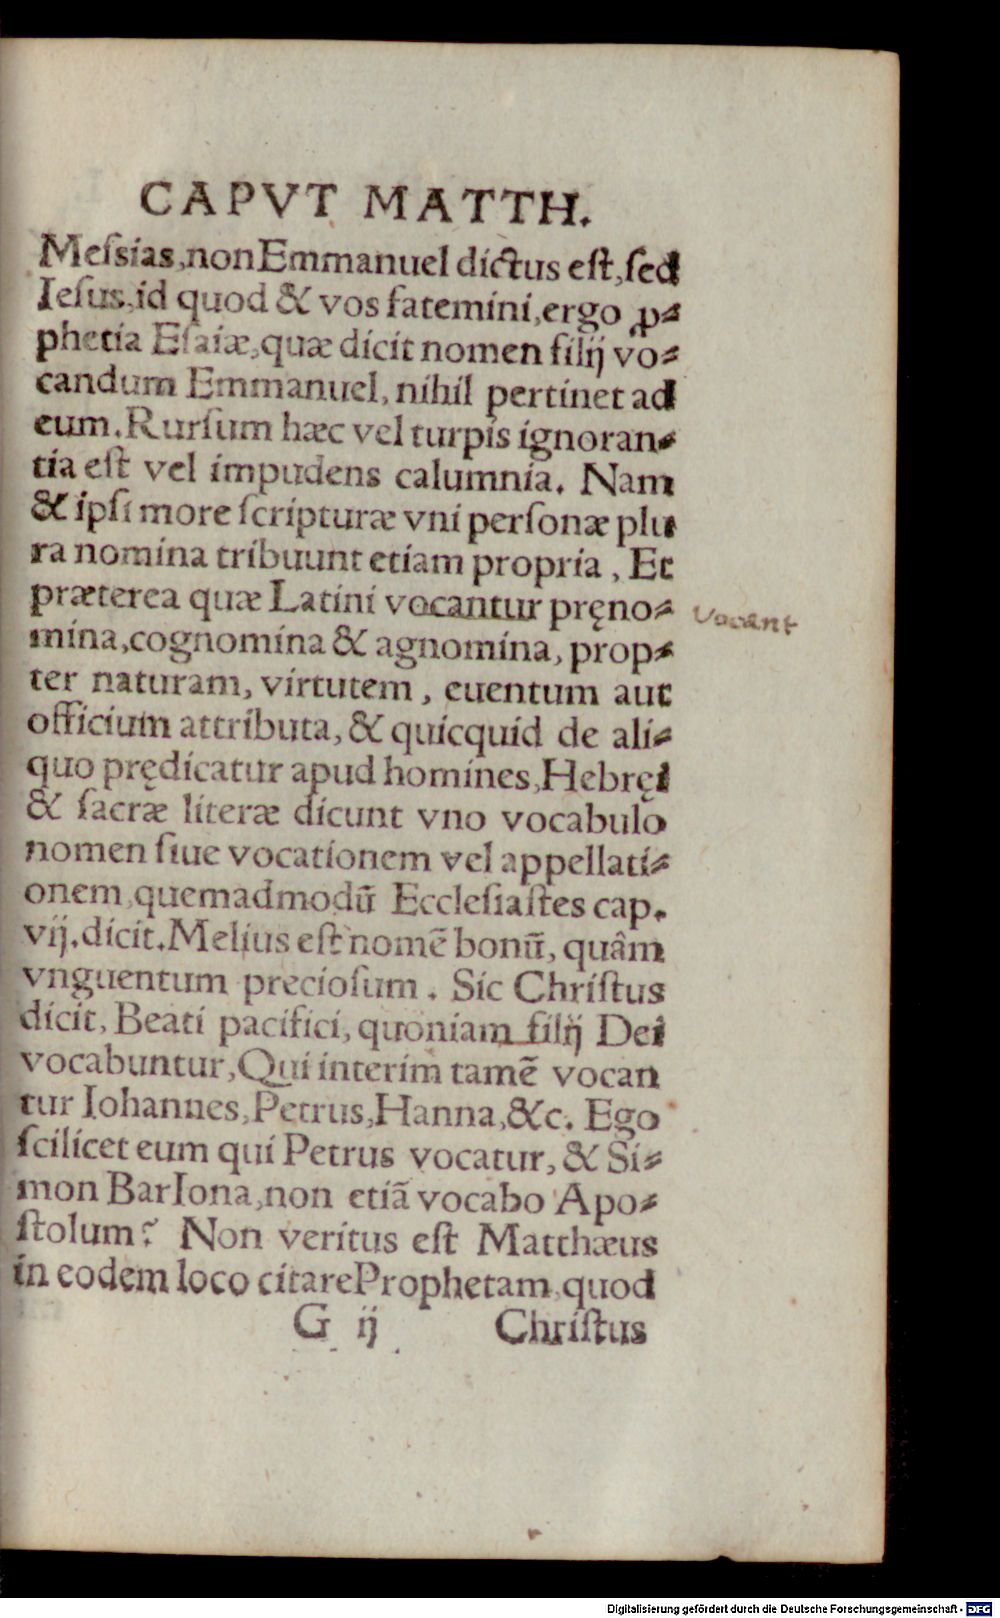 CAPVT MATTH.
Meſsias, non Emmanuel dictus eſt, ſed
Ieſus, id quod & vos fatemini, ergo ꝓ⸗
phetia Eſaiæ, quæ dicit nomen filij vo⸗
candum Emmanuel, nihil pertinet ad
eum. Rurſum hæc vel turpis ignoran⸗
tia eſt vel impudens calumnia. Nam
& ipſi more ſcripturæ vni perſonæ plu
ra nomina tribuunt etiam propria, Et
præterea quæ Latini vocantur pręno⸗
vocant
mina, cognomina & agnomina, prop⸗
ter naturam, virtutem, euentum aut
officium attributa, & quicquid de ali⸗
quo prędicatur apud homines, Hebręi
& ſacræ literæ dicunt vno vocabulo
nomen ſiue vocationem vel appellati⸗
onem, quemadmodũ Eccleſiaſtes cap.
vij. dicit. Melius eſt nomẽ bonũ, quâm
vnguentum precioſum. Sic Chriſtus
dicit, Beati pacifici, quoniam filij Dei
vocabuntur, Qui interim tamẽ vocan
tur Iohannes, Petrus, Hanna, &c. Ego
ſcilicet eum qui Petrus vocatur, & Si⸗
mon BarIona, non etiã vocabo Apo⸗
ſtolum? Non veritus eſt Matthæus
in eodem loco citare Prophetam, quod
G ij Chriſtus
Digitalisierung gefördert durch die Deutsche Forschungsgemeinschaft - DFG